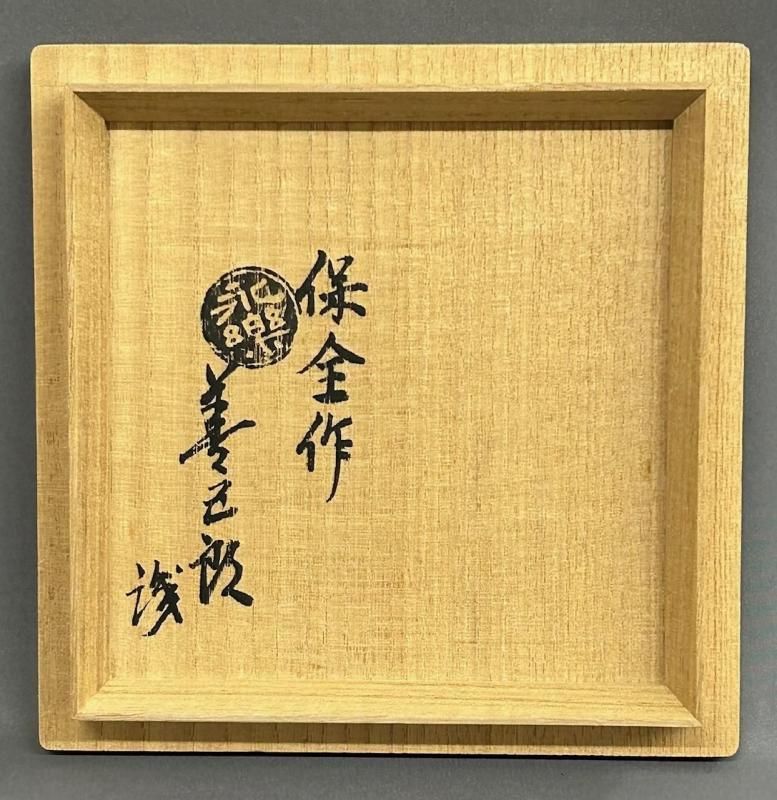 保全作
永樂
善五郎
識